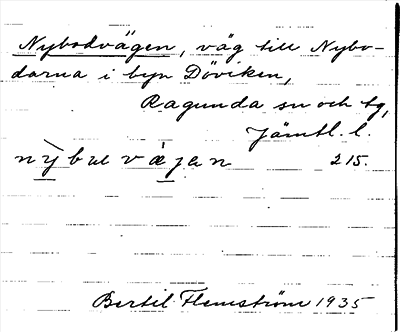 Nybodvägen, väg till Nybo-
darna i byn Döviken,
Ragunda sn och tg,
Jämtl. l.
215.
Bertil Flemström 1935